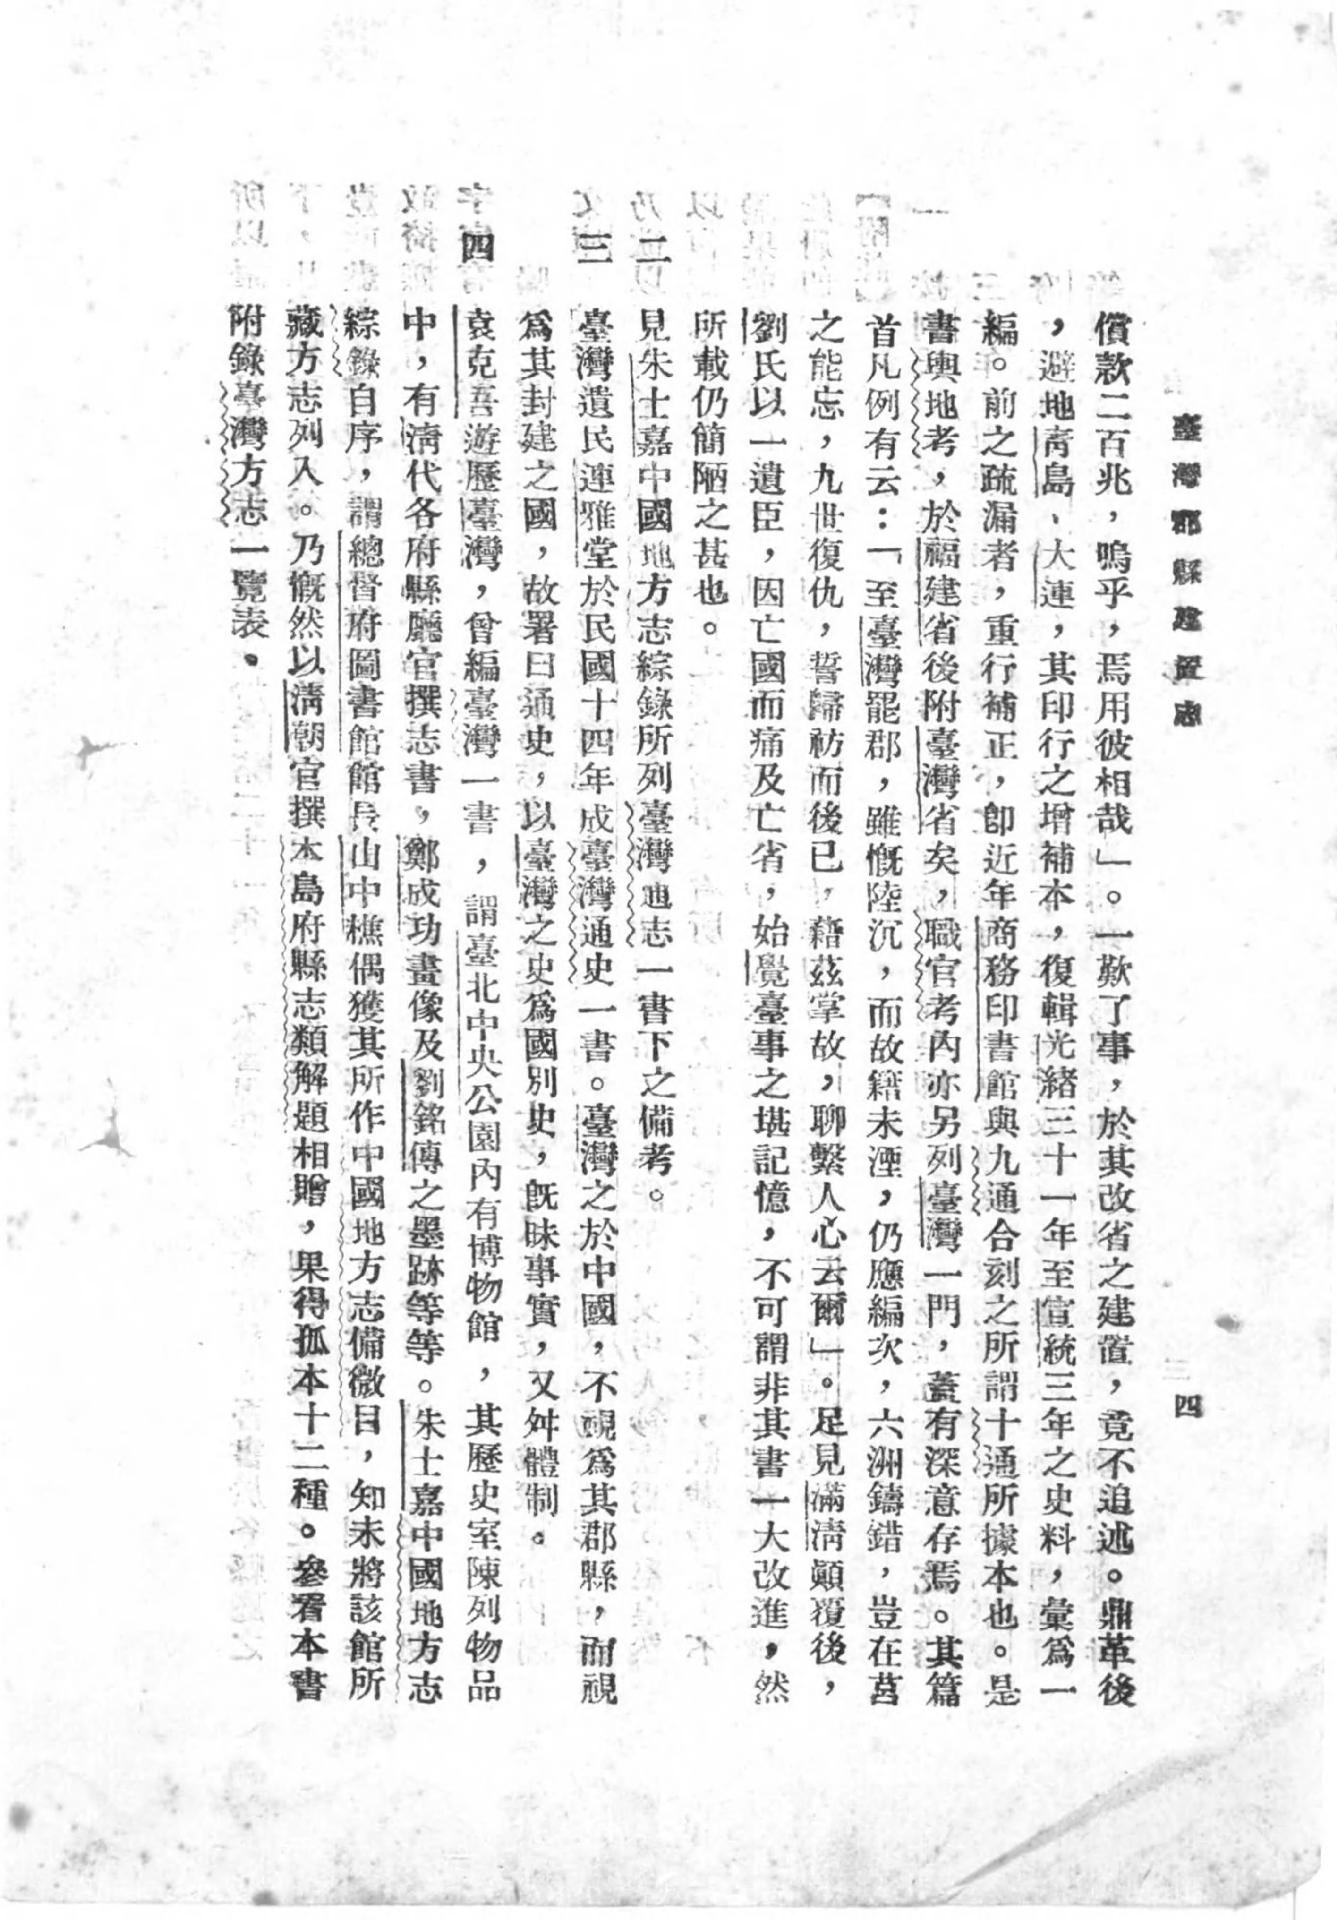 臺灣郡縣建置志
四
償款二百兆，嗚乎，焉用彼相哉」。一歎了事，於其改省之建置，竟不追述。鼎革後
，避地靑島、大連，其印行之增補本，復輯光緒三十一年至宣統三年之史料，彙爲一
編。前之疏漏者，重行補正，卽近年商務印書館與九通合刻之所謂十通所據本也。是
書輿地考，於福建省後附臺灣省矣，職官考內亦另列臺灣一門，蓋有深意存焉。其篇
首凡例有云：「至臺灣罷郡，雖慨陸沉，而故籍未湮，仍應編次，六洲鑄錯，豈在莒
之能忘，九世復仇，誓歸祊而後已，藉茲掌故，聊繫人心云爾」。足見滿淸顚覆後，
劉氏以一遺臣，因亡國而痛及亡省，始覺臺事之堪記憶，不可謂非其書一大改進，然
所載仍簡陋之甚也。
二　見朱士嘉中國地方志綜錄所列臺灣通志一書下之備考。
三　臺灣遺民連雅堂於民國十四年成臺灣通史一書。臺灣之於中國，不視爲其郡縣，而視
爲其封建之國，故署曰通史，以臺灣之史爲國別史，旣昧事實，又舛體制。
四　袁克吾遊歷臺灣，曾編臺灣一書，謂臺北中央公園內有博物館，其歷史室陳列物品
中，有淸代各府縣廳官撰志書，鄭成功畫像及劉銘傳之墨跡等等。朱士嘉中國地方志
綜錄自序，謂總督府圖書館館長山中樵偶獲其所作中國地方志備徵目，知未將該館所
藏方志列入。乃慨然以淸朝官撰本島府縣志類解題相贈，果得孤本十二種。參看本書
附錄臺灣方志一覽表。